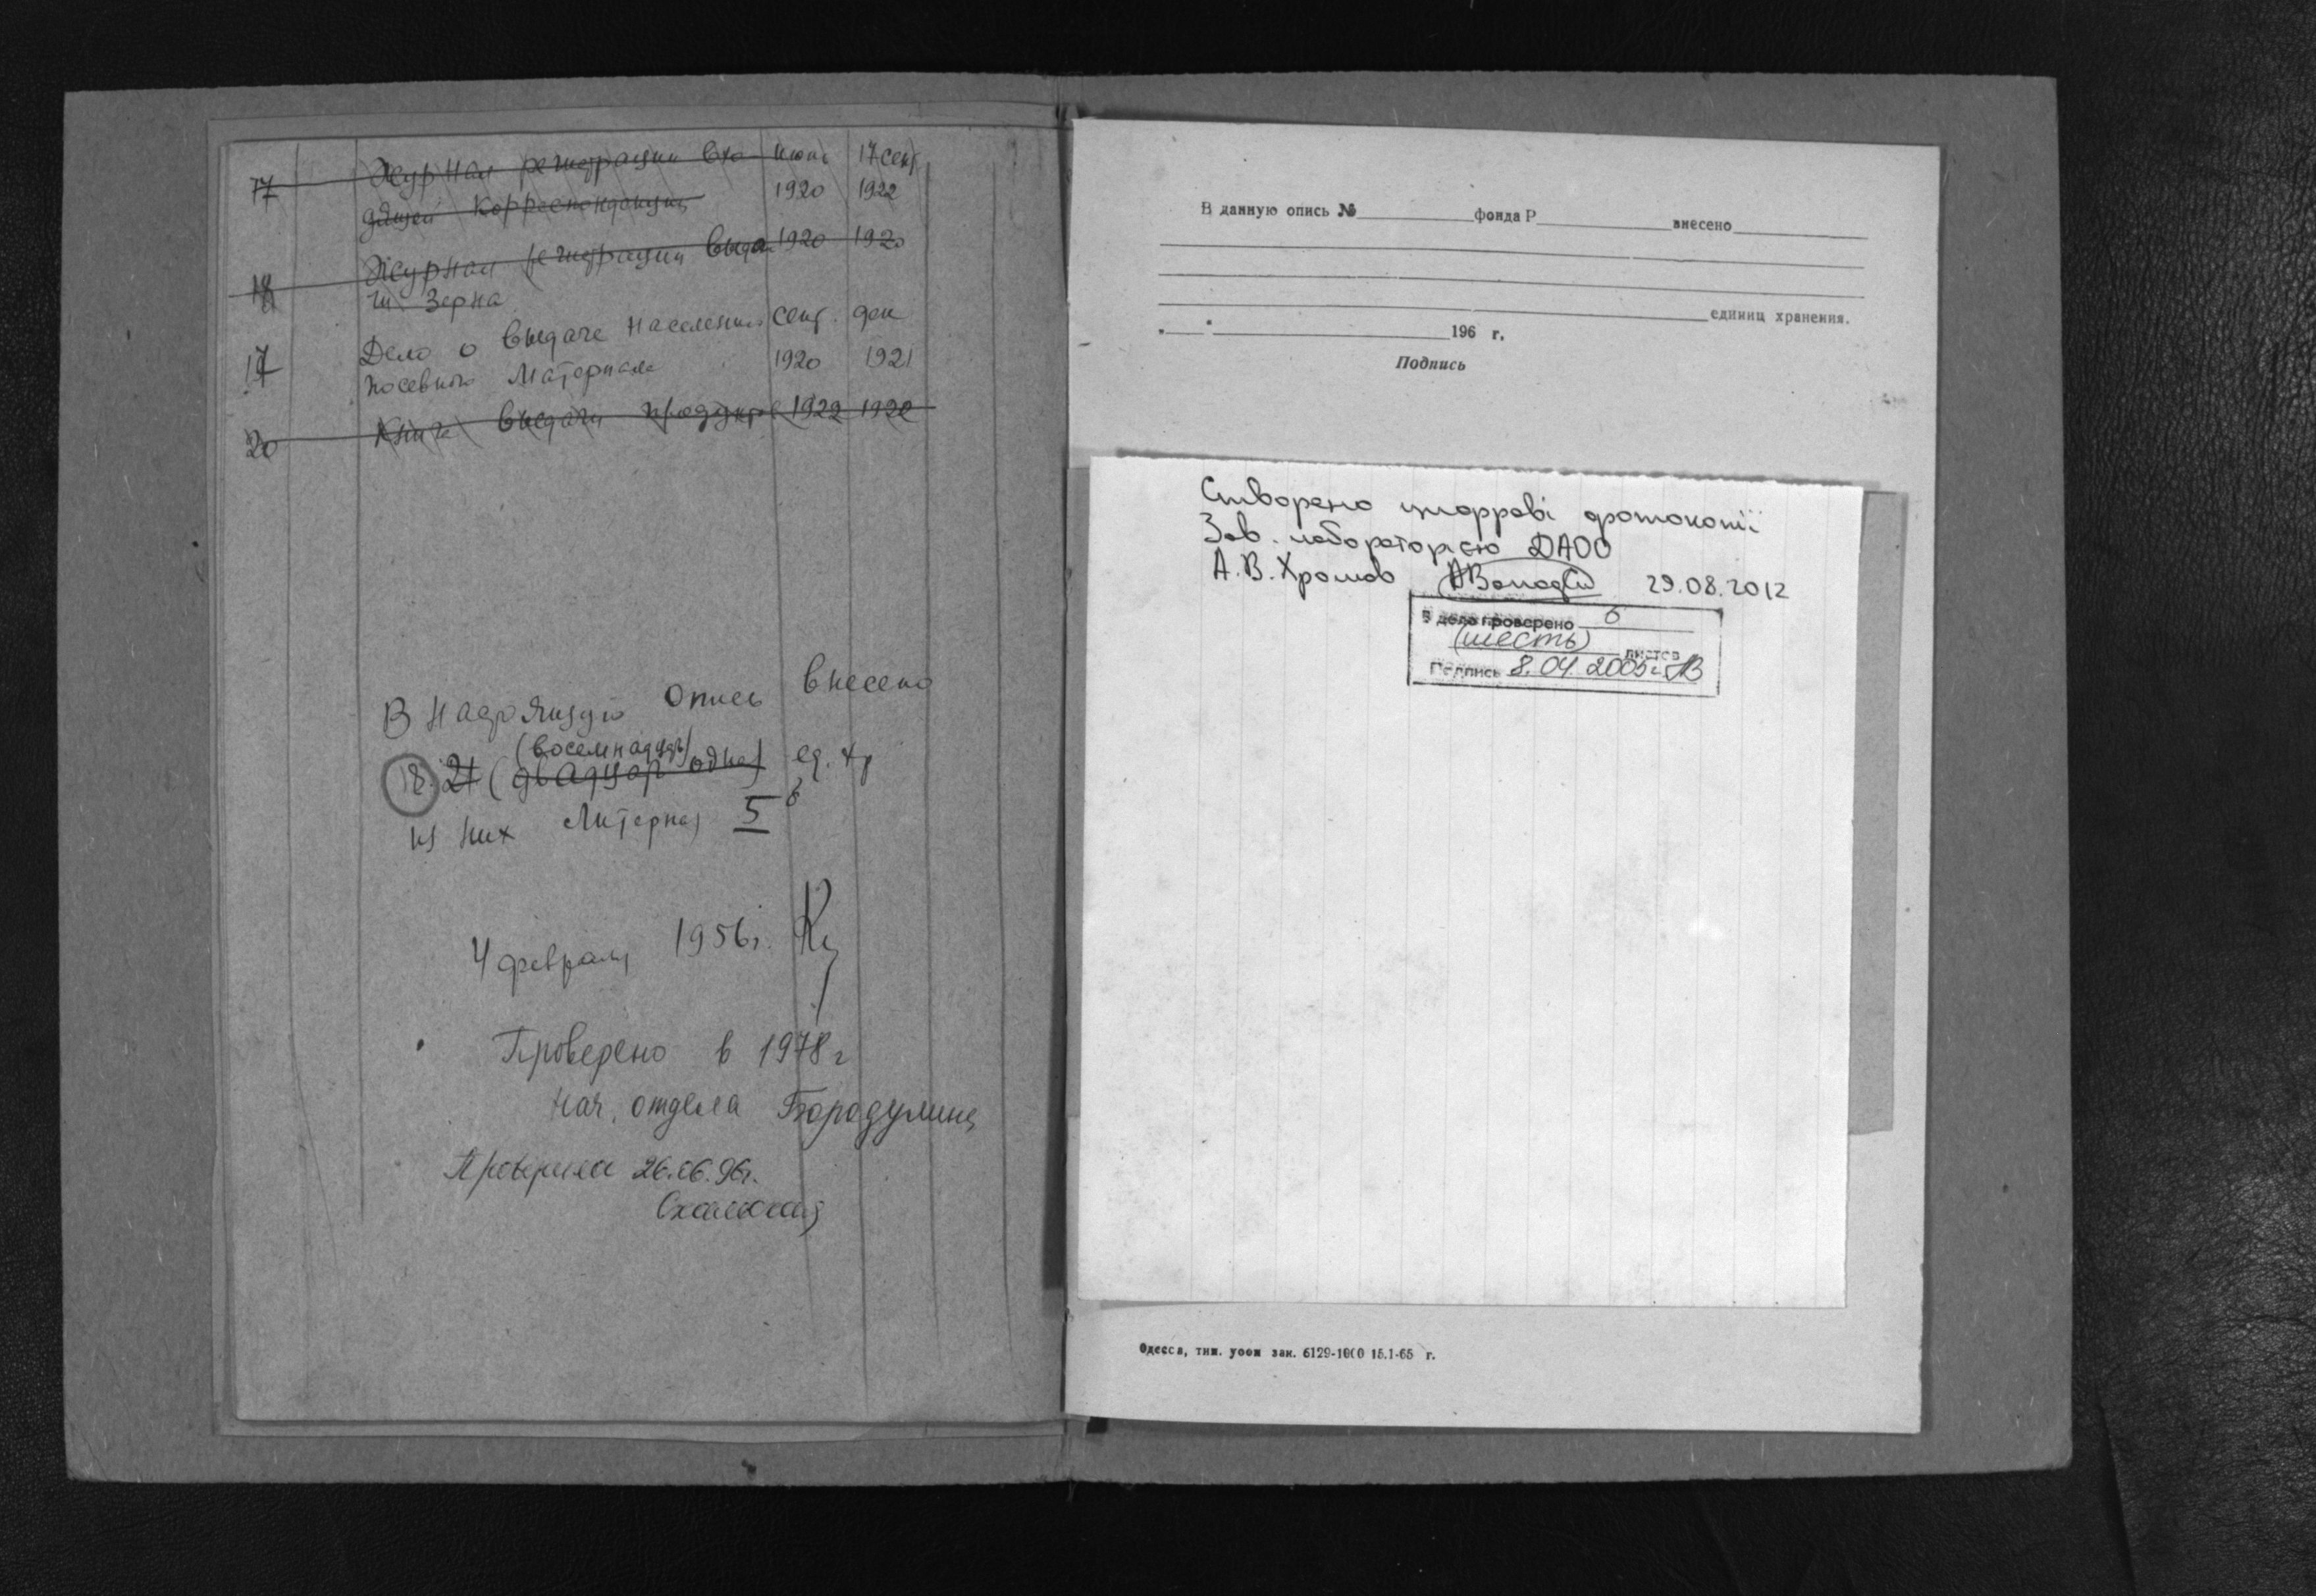 17 Журнал регистрации вхо- июнь 17 сент.
дящей корреспонденции 1920 1922
18 Журнал регистрации выда- 1920 1920
чи зерна
17 Дело о выдаче населению сент. дек
посевного материала 1920 1921
20 Книга выдачи продуктов 1922 1922
В настоящую опись внесено
(восемнадцать)
18 21 (двадцать одна) ед. хр
из них литерных 5 6
4 февраля 1956 г.
Проверено в 1978 г
нач. отдела Бородулина
Проверила 26.06.96г.
В данную опись № фонда Р внесено
единиц хранения.
„ " 196 г.
Подпись
Створено цифрові фотокопії
Зав. лабораторією ДАОО
А.В. Хромов 29.08.2012
В деле проверено 6
(шесть)
листов
Подпись 8.04.2005г.
Одесса, тип. уооп зак. 6129-1000 15.1-65 г.